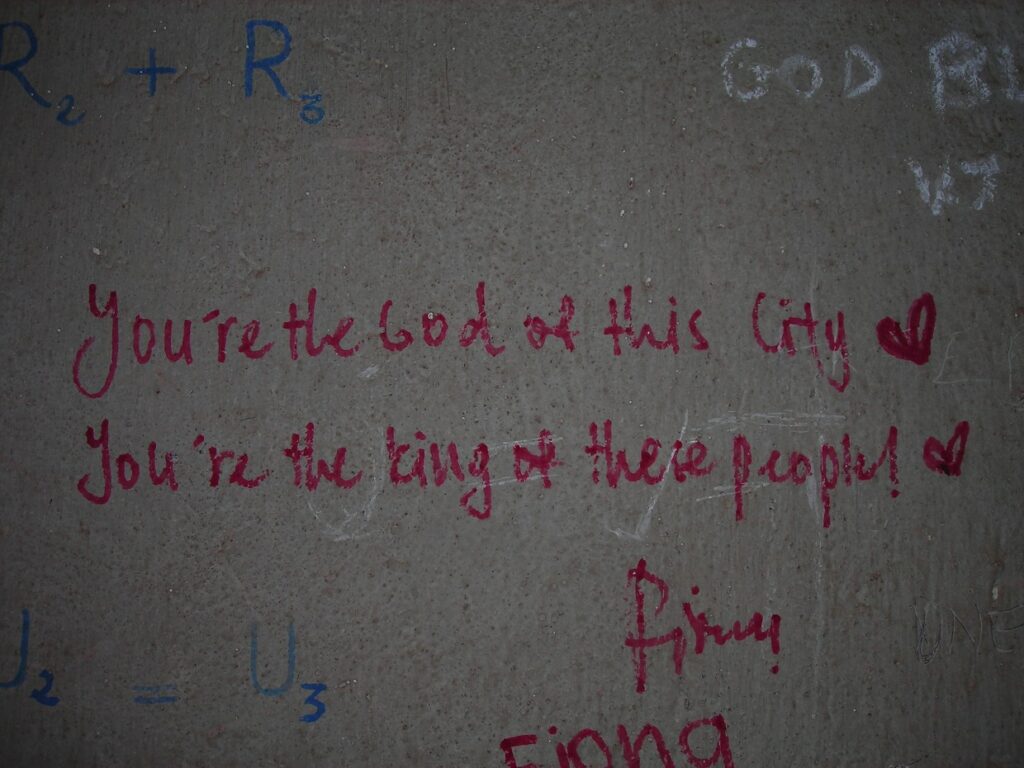 R2 + R3
GOD BL
You're the God of this City ♥
You're the king of these people! ♥
U2 = U3
Fiona